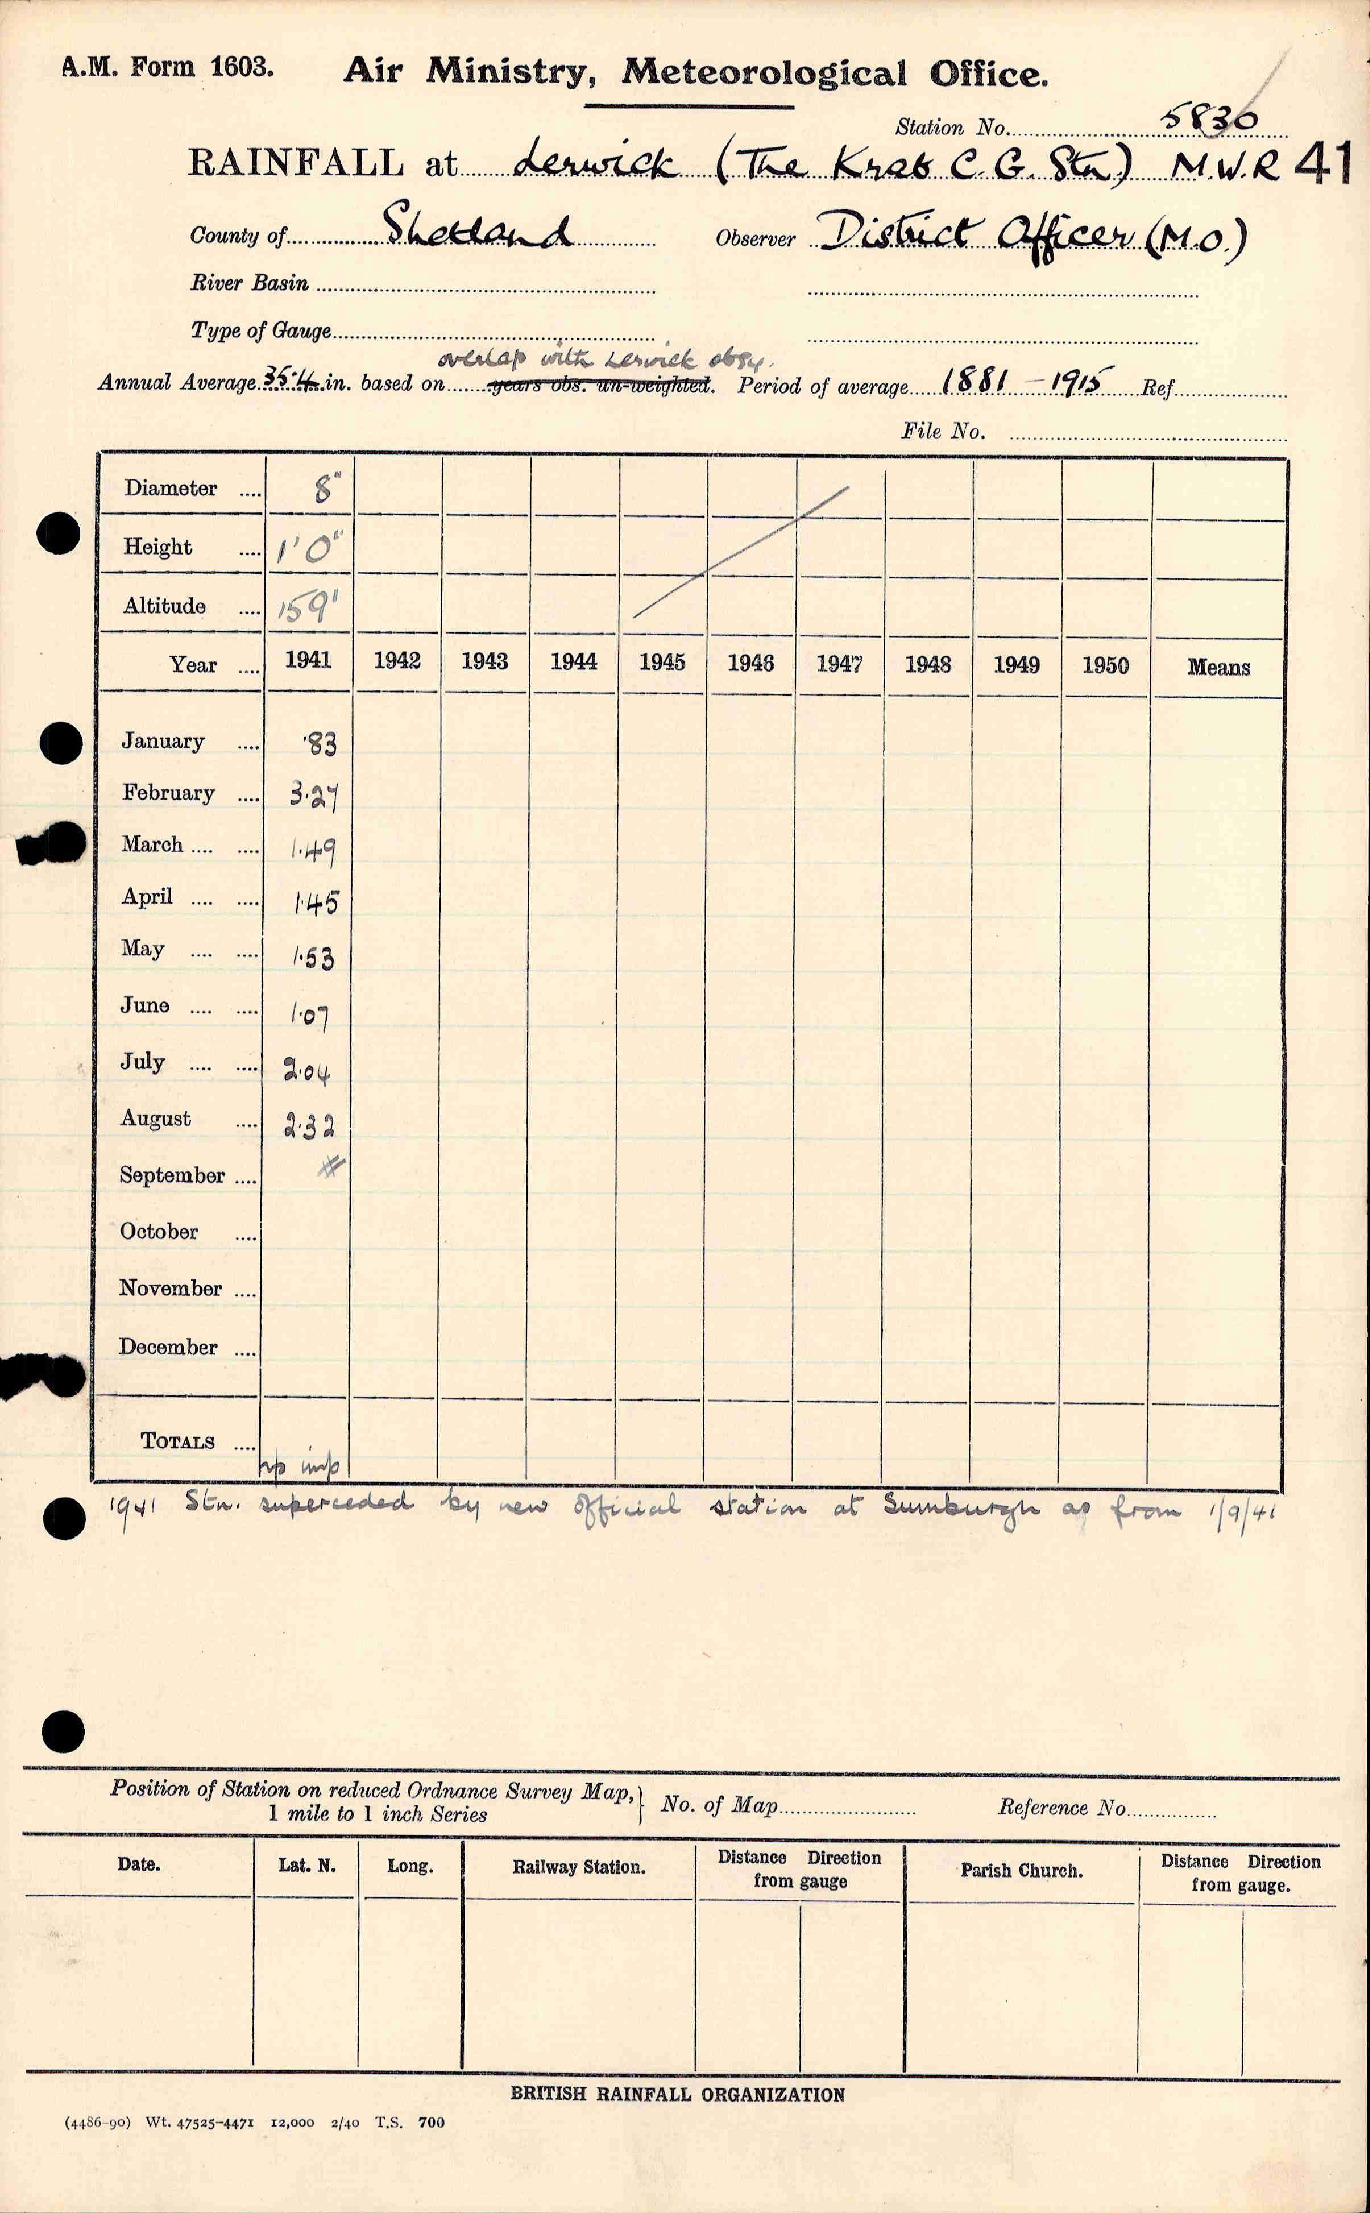 A.M. Form 1603. Air Ministry, Meteorological Office.
Station No. 5830
RAINFALL at Lerwick (The Knab C. G. Stn.) M.W.R 41
County of Shetland Observer District Officer (M.O.)
River Basin
Type of Gauge
overlap with Lerwick obsy.
Annual Average 35.4 in. based on years obs. un-weighted. Period of average 1881 - 1915 Ref.
File No.
Diameter .... 8"
Height .... 1' 0"
Altitude .... 159'
Year .... 1941 1942 1943 1944 1945 1946 1947 1948 1949 1950 Means
January .... .83
February .... 3.27
March .... .... 1.49
April .... .... 1.45
May .... .... 1.53
June .... .... 1.07
July .... .... 2.04
August .... 2.32
September ....
October ....
November ....
December ....
TOTALS ....
1941 Stn. superceded by new official station at Sumburgh as from 1/9/41
Position of Station on reduced Ordnance Survey Map, } No. of Map Reference No.
1 mile to 1 inch Series
Date. Lat. N. Long. Railway Station. Distance Direction from gauge Parish Church. Distance Direction from gauge.
BRITISH RAINFALL ORGANIZATION
(4486-90) Wt. 47525-4471 12,000 2/40 T.S. 700